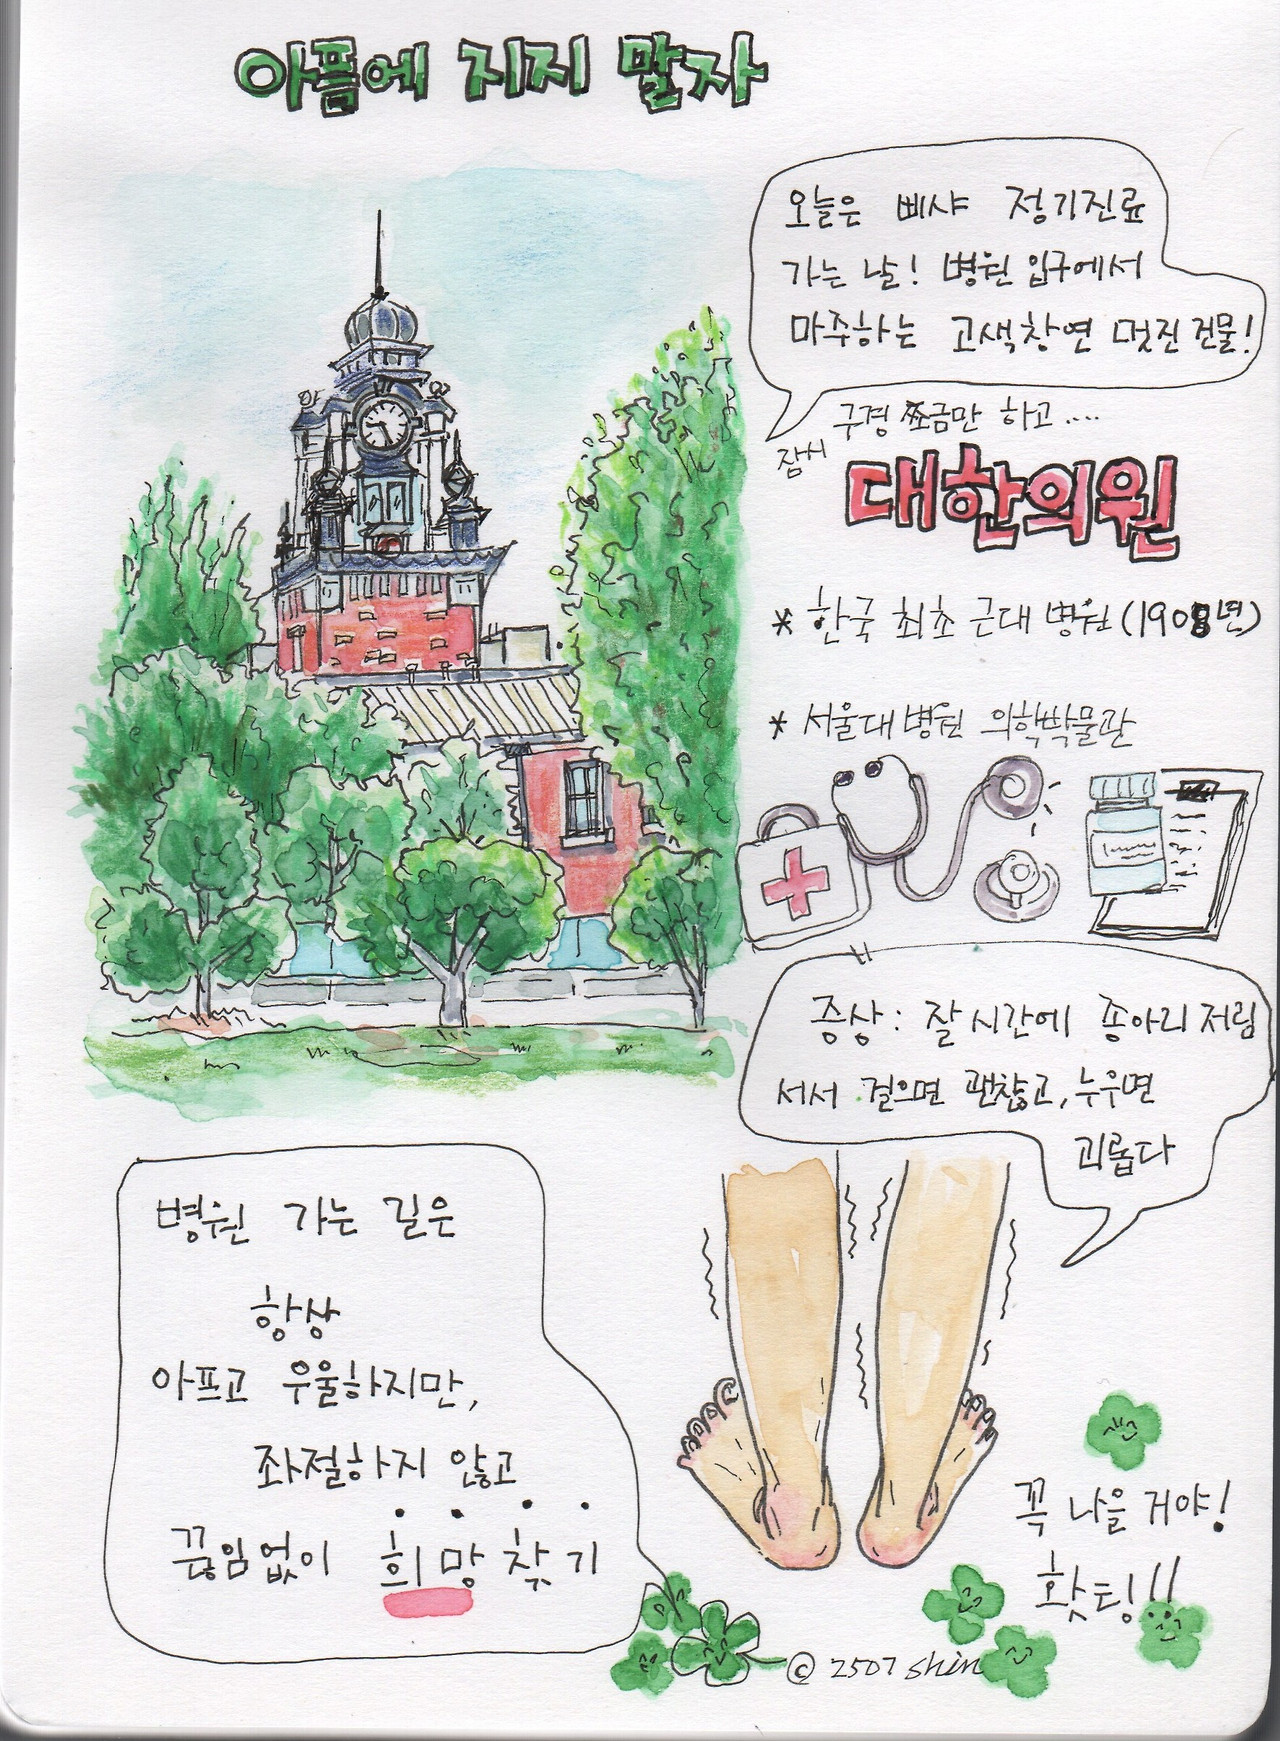 아픔에 지지 말자
오늘은 삐샤 정기진료
가는 날! 병원 입구에서
마주하는 고색창연 멋진 건물!
잠시 구경 쪼금만 하고....
대한의원
* 한국 최초 근대 병원(1908년)
* 서울대병원 의학박물관
증상: 잘시간에 종아리 저림
서서 걸으면 괜찮고, 누우면
괴롭다
병원 가는 길은
항상
아프고 우울하지만,
좌절하지 않고
끊임없이 희망찾기
꼭 나을 거야!
홧팅!!
© 2507 shin